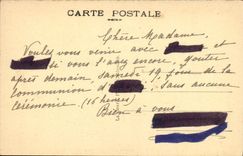 CARTE POSTALE
Chère Madame,
Voulez vous venir avec et
si vous l'avez encore, goûter
après demain, Samedi 19, jour de la
Communion d' , sans aucune
cérémonie. (16 heures)
Bien à vous